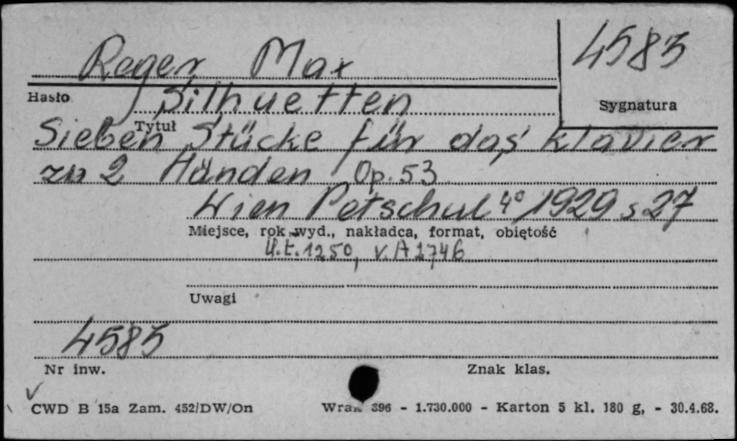 Reger Max
4585
Hasło
Silhuetten
Sygnatura
Tytuł
Sieben Stücke für das Klavier
zu 2 Händen Op. 53
Wien Petschul 4° 1929 s 27
Miejsce, rok wyd., nakładca, format, objętość
U.t. 1250, v. A 2746
Uwagi
4585
Nr inw.
Znak klas.
CWD B 15a Zam. 452/DW/On
396 - 1.730.000 - Karton 5 kl. 180 g, - 30.4.68.